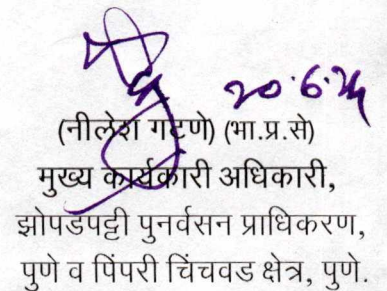 २०.6.24
(नीलेश गटणे) (भा.प्र.से)
मुख्य कार्यकारी अधिकारी,
झोपडपट्टी पुनर्वसन प्राधिकरण,
पुणे व पिंपरी चिंचवड क्षेत्र, पुणे.